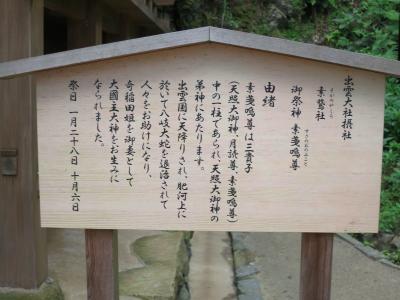 出雲大社摂社
素鵞社
御祭神 素戔嗚尊
由緒
素戔嗚尊は三貴子
(天照大御神、月読尊、素戔嗚尊)
中の一柱であられ、天照大御神の
弟神にあたります。
出雲国に天降りされ、肥河上に
於いて八岐大蛇を退治されて
人々をお助けになり、
奇稲田姫を御妻として
大國主大神をお生みに
なられました。
祭日 一月二十八日 十月六日